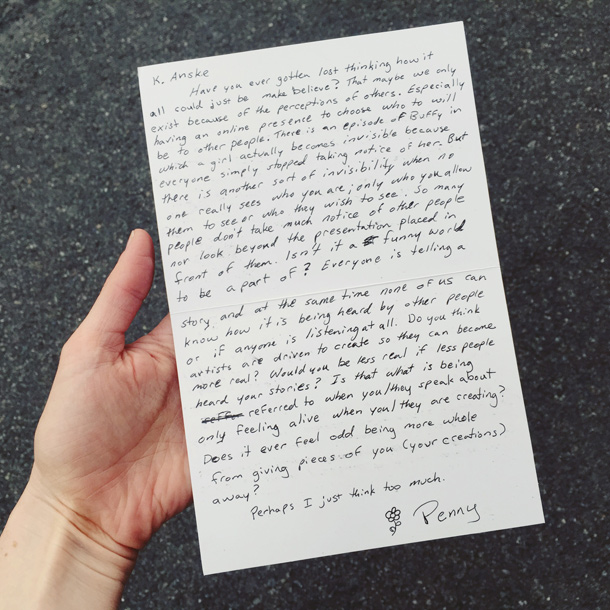 K. Anske
Have you ever gotten lost thinking how it
all could just be make believe? That maybe we only
exist because of the perceptions of others. Especially
having an online presence to choose who to will
be to other people. There is an episode of Buffy in
which a girl actually becomes invisible because
everyone simply stopped taking notice of her. But
there is another sort of invisibility when no
one really sees who you are; only who you allow
them to see or who they wish to see. So many
people don't take much notice of other people
nor look beyond the presentation placed in
front of them. Isn't it a funny world
to be a part of? Everyone is telling a
story and at the same time none of us can
know how it is being heard by other people
or if anyone is listening at all. Do you think
artists are driven to create so they can become
more real? Would you be less real if less people
heard your stories? Is that what is being
referred to when you/they speak about
only feeling alive when you/they are creating?
Does it ever feel odd being more whole
from giving pieces of you (your creations)
away?
Perhaps I just think too much.
Penny